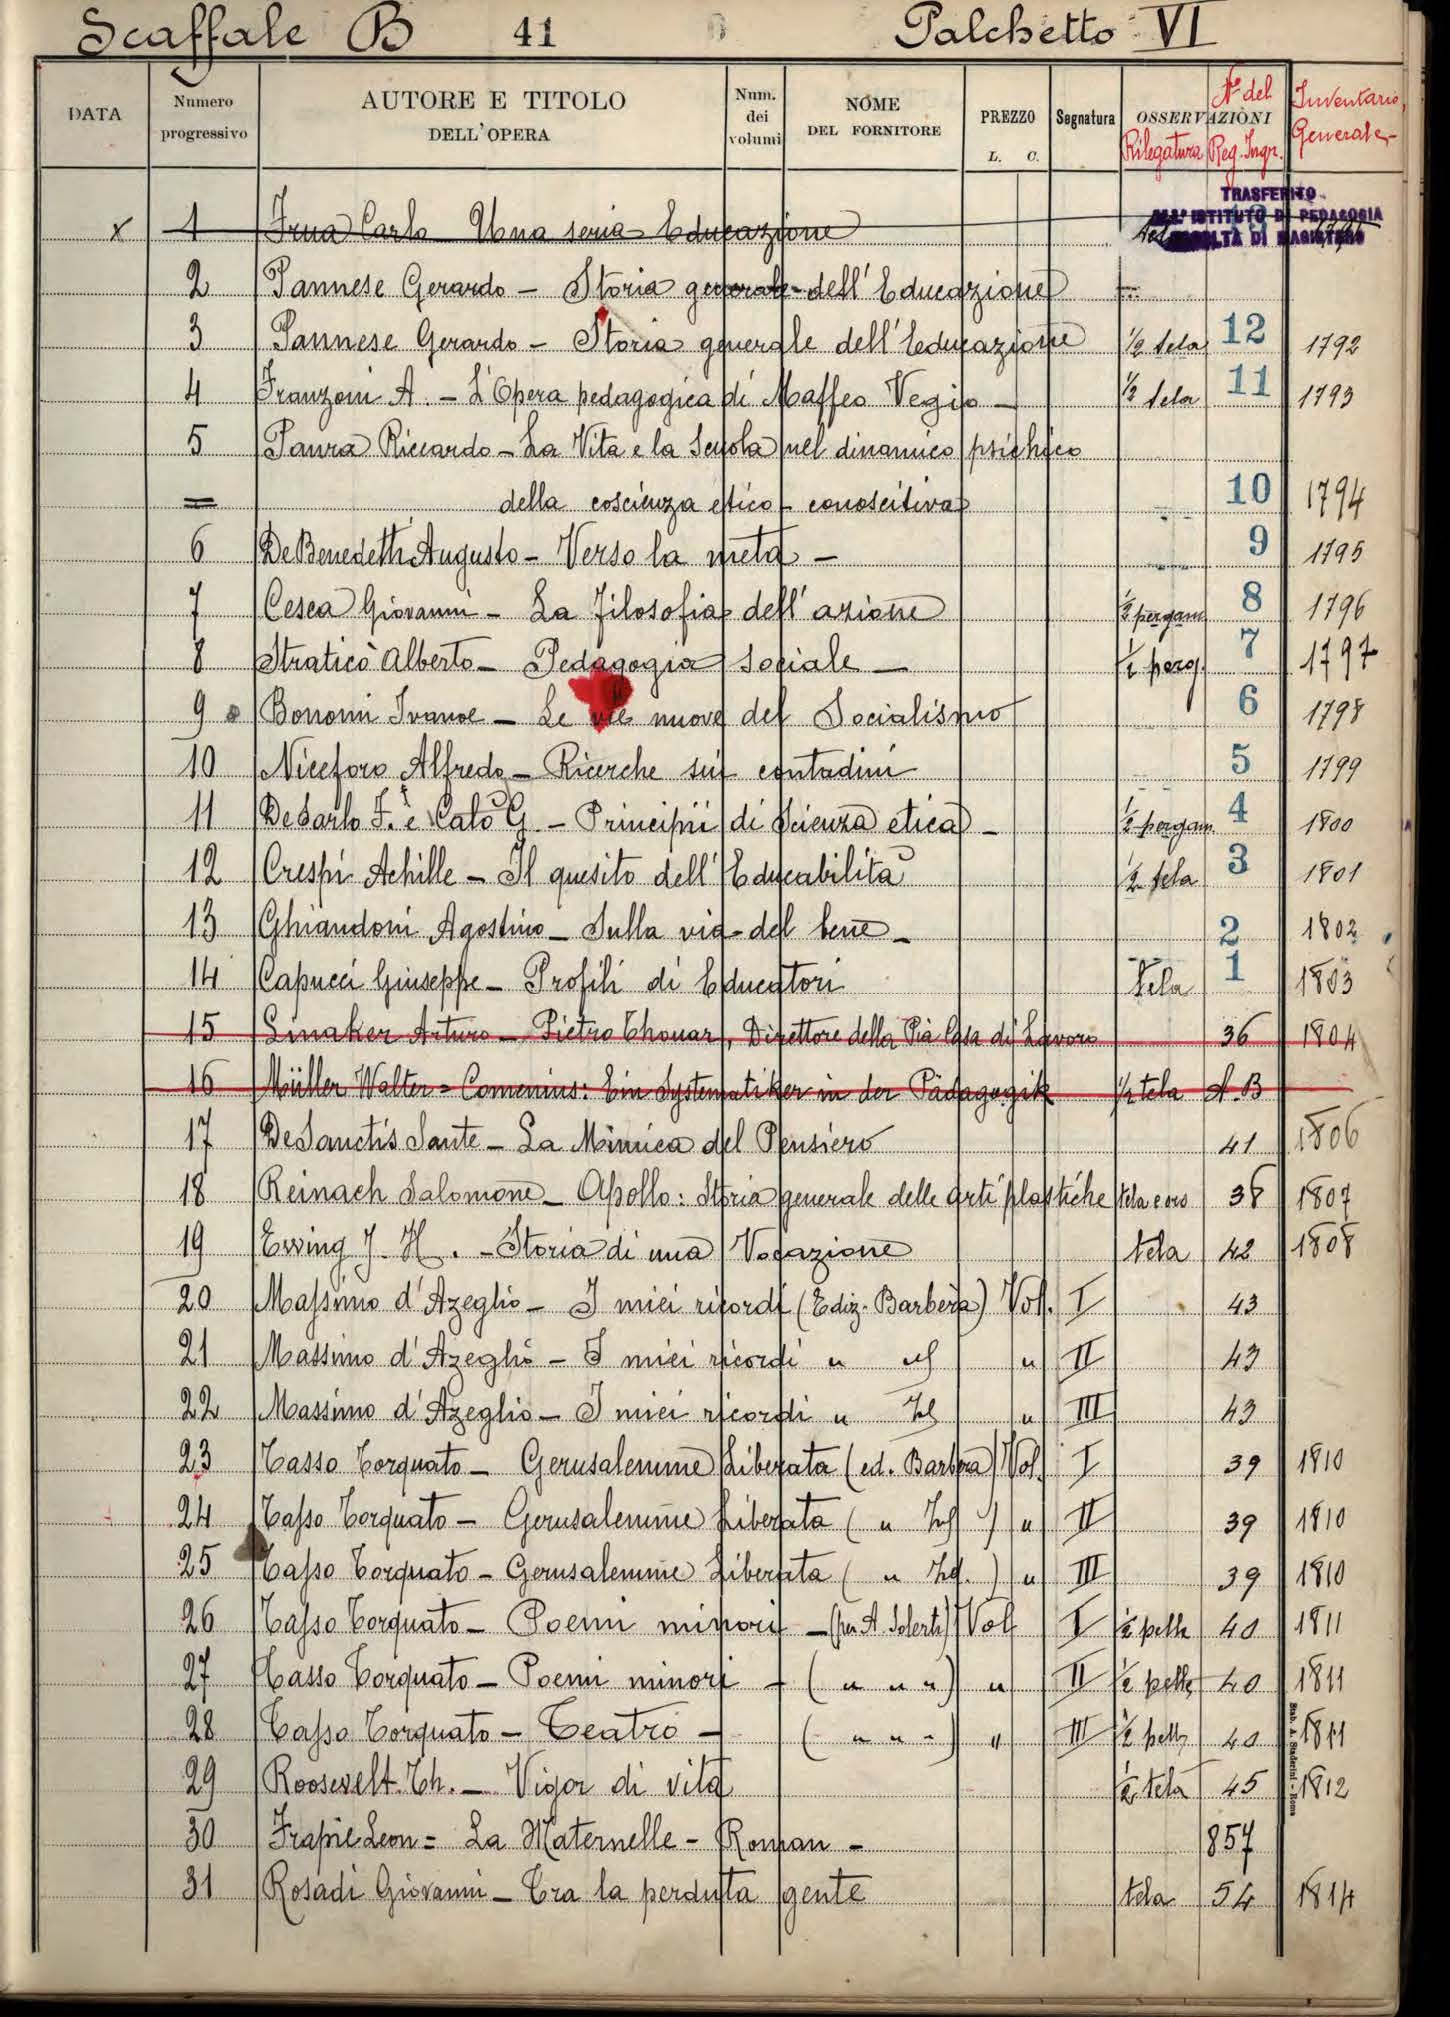 Scaffale B 41 Palchetto VI
DATA Numero progressivo AUTORE E TITOLO DELL'OPERA Num. dei volumi NOME DEL FORNITORE PREZZO L. C. Segnatura OSSERVAZIONI Rilegatura N° del Reg. Ingr. Inventario Generale
TRASFERITO
ALL'ISTITUTO DI PEDAGOGIA
FACOLTÀ DI MAGISTERO
x 1 Frua Carlo Una seria Educazione
2 Pannese Gerardo - Storia generale dell'Educazione
3 Pannese Gerardo - Storia generale dell'Educazione ½ tela 12 1792
4 Franzoni A. - L'Opera pedagogica di Maffeo Vegio - ½ tela 11 1793
5 Paura Riccardo - La Vita e la Scuola nel dinamico psichico
= della coscienza etico - conoscitiva 10 1794
6 De Benedetti Augusto - Verso la meta - 9 1795
7 Cesca Giovanni - La Filosofia dell'azione ½ pergam 8 1796
8 Straticò Alberto - Pedagogia sociale - ½ perg. 7 1797
9 Bonomi Ivanoe - Le vie nuove del Socialismo 6 1798
10 Niceforo Alfredo - Ricerche sui contadini 5 1799
11 De Sarlo F. e Calò G. - Principii di Scienza etica - ½ pergam. 4 1800
12 Crespi Achille - Il quesito dell'Educabilità ½ tela 3 1801
13 Ghiandoni Agostino - Sulla via del bene - 2 1802
14 Capucci Giuseppe - Profili di Educatori tela 1 1803
15 Linaker Arturo - Pietro Thouar, Direttore della Pia Casa di Lavoro 36 1804
16 Müller Walter = Comenius: Ein Systematiker in der Pädagogik ½ tela A.B
17 De Sanctis Sante - La Mimica del Pensiero 41 1806
18 Reinach Salomone - Apollo: Storia generale delle arti plastiche tela e oro 38 1807
19 Ewing J. H. - Storia di una Vocazione tela 42 1808
20 Massimo d'Azeglio - I miei ricordi (Ediz. Barbèra) Vol. I 43
21 Massimo d'Azeglio - I miei ricordi " " II 43
22 Massimo d'Azeglio - I miei ricordi " " III 43
23 Tasso Torquato - Gerusalemme Liberata (ed. Barbèra) Vol. I 39 1810
24 Tasso Torquato - Gerusalemme Liberata ( " ) " II 39 1810
25 Tasso Torquato - Gerusalemme Liberata ( " ) " III 39 1810
26 Tasso Torquato - Poemi minori - (per A. Solerti) Vol I ½ pelle 40 1811
27 Tasso Torquato - Poemi minori - ( " " " ) " II ½ pelle 40 1811
28 Tasso Torquato - Teatro - ( " " " ) " III ½ pelle 40 1811
29 Roosevelt Th. - Vigor di vita ½ tela 45 1812
30 Frapié Leon = La Maternelle - Roman - 857
31 Rosadi Giovanni - Tra la perduta gente tela 54 1814
Stab. A. Staderini - Roma